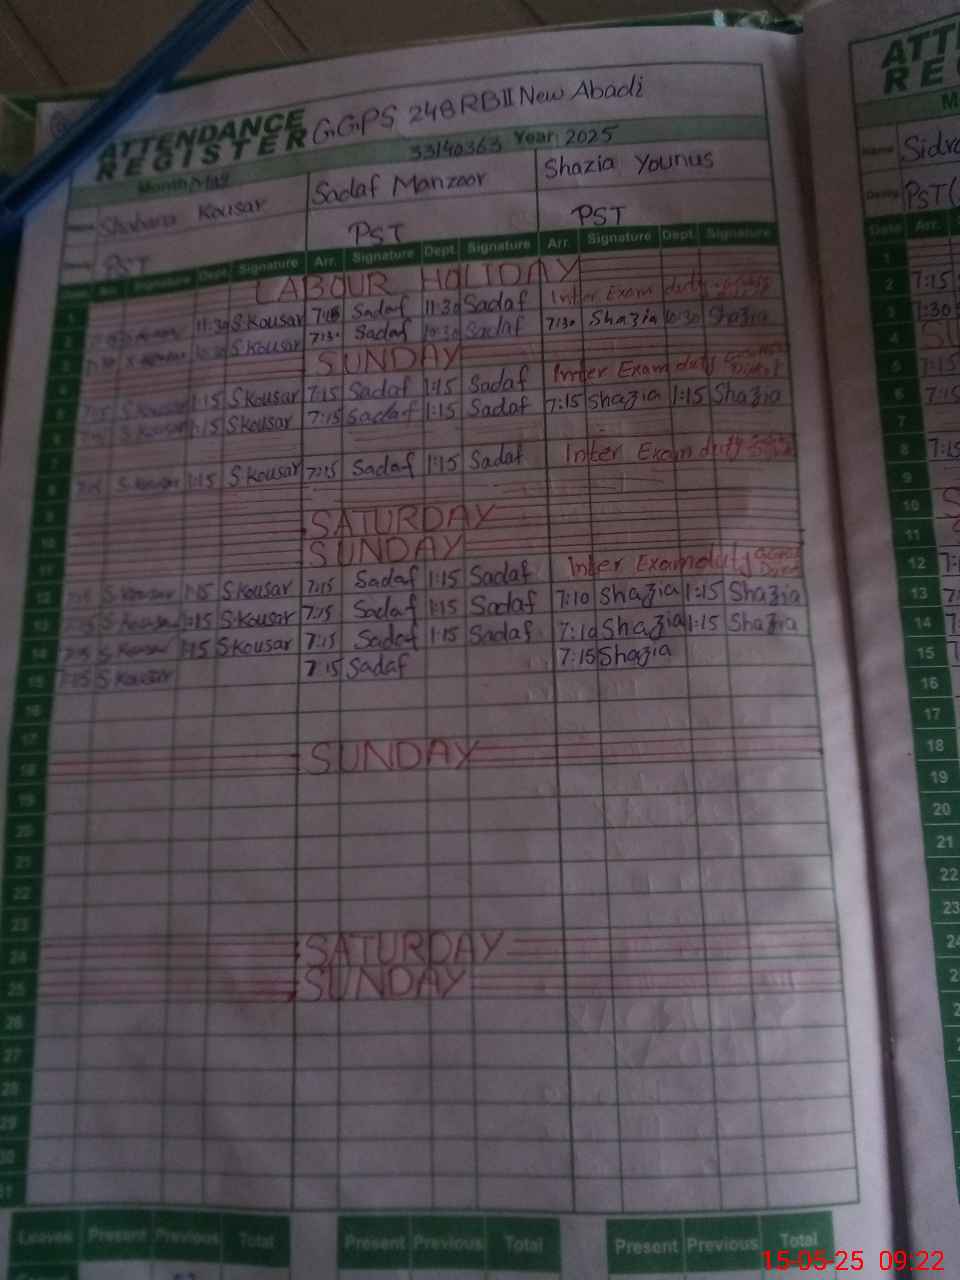 ATTENDANCE REGISTER GGPS 248RBII New Abadi
33140363 Year: 2025
Month May
Shabana Kousar Sadaf Manzoor Shazia Younus
PST PST PST
Signature Dept. Signature Arr. Signature Dept. Signature Arr. Signature Dept. Signature
1 LABOUR HOLIDAY
2 11:30 S.Kousar Sadaf 11:30 Sadaf Inter Exam duty
3 7:30 10:30 S.Kousar 7:30 Sadaf 10:30 Sadaf 7:30 Shazia 10:30 Shazia
4 SUNDAY
5 7:15 S.Kousar 1:15 S.Kousar 7:15 Sadaf 1:15 Sadaf Inter Exam duty
6 7:15 S.Kousar 1:15 S.Kousar 7:15 Sadaf 1:15 Sadaf 7:15 Shazia 1:15 Shazia
7
8 7:15 S.Kousar 1:15 S.Kousar 7:15 Sadaf 1:15 Sadaf Inter Exam duty
9
10 SATURDAY
11 SUNDAY
12 7:15 S.Kousar 1:15 S.Kousar 7:15 Sadaf 1:15 Sadaf Inter Exam duty
13 7:15 S.Kousar 1:15 S.Kousar 7:15 Sadaf 1:15 Sadaf 7:10 Shazia 1:15 Shazia
14 7:15 S.Kousar 1:15 S.Kousar 7:15 Sadaf 1:15 Sadaf 7:10 Shazia 1:15 Shazia
15 7:15 S.Kousar 7:15 Sadaf 7:15 Shazia
16
17
18 SUNDAY
19
20
21
22
23
24 SATURDAY
25 SUNDAY
26
27
28
29
30
31
Leaves Present Previous Total Present Previous Total Present Previous Total
ATTE
RE
M
Name Sidra
PST
Date Arr.
1
2 7:15
3 7:30
4 SU
5 7:15
6 7:15
7
8 7:15
9
10 S
11 S
12 7:1
13 7:
14 7:
15
16
17
18
19
20
21
22
23
24
15-05-25 09:22